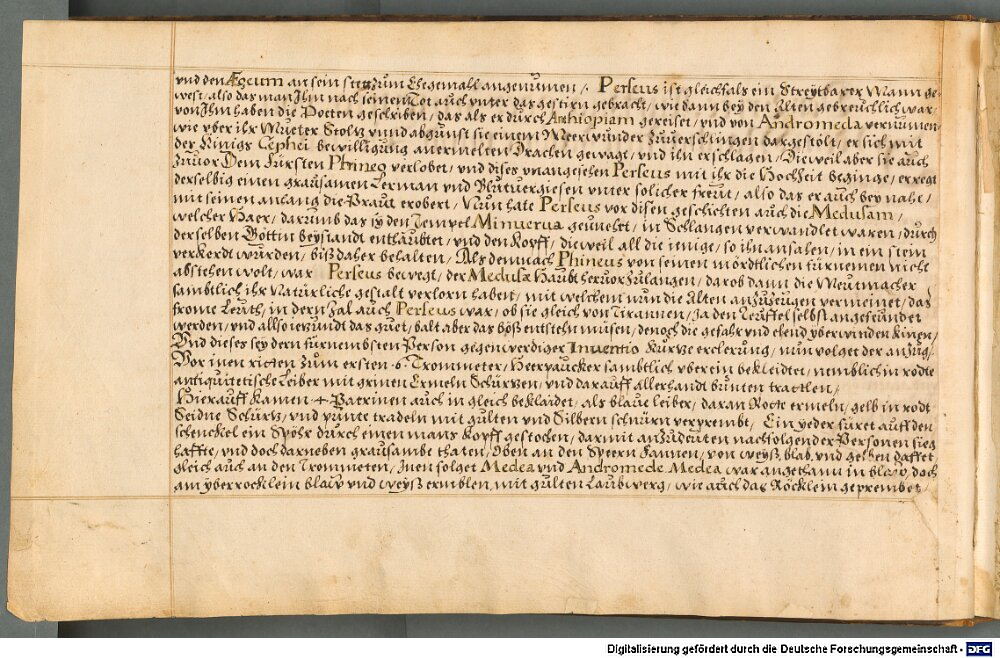 vnd den Ægeum an sein stat zum Ehegemahl angenumen / Perseus ist gleichfals ein Streytbarer Mann ge-
west / also das man Ihn nach seinem Tot auch vnter das gestirn gebracht / wie dann bey den Alten gebreuchlich war /
von Ihm haben die Poeten geschriben / das als er durch Æthiopiam gereiset / vnd von Andromeda vernumen
wie vber ihr Mueter Stoltz vnnd abgunst sie einem Meerwunder zuuerschlingen dargestölt / er sich mit
des Künigs Cephei bewilligung an ermelten Drachen gewagt / vnd ihn erschlagen / Dieweil aber sie auch
zuuor Dem Fürsten Phineo verlobet / vnd dises vnangesehen Perseus mit ihr die Hochzeit beginge / erregt
derselbig einen grausamen Lerman vnd Bluetuergiesen vnter solicher freut / also das er auch bey nahe /
mit seinen anhang die Praut erobert / Nun hate Perseus vor disen geschichten auch die Medusam /
welcher Haer / darumb das sy den Tempel Minuerua geunehrt / in Schlangen verwandlet waren / durch
derselben Göttin beystandt enthaubtet / vnd den Kopff / dieweil all die ienige / so ihn ansahen / in ein stein
verkerdt wurden / biß daher behalten / Als demnach Phineus von seinen mördtlichen fürnemen nicht
abstehen wolt / war Perseus bewegt / der Medusæ Haubt heruor zulangen / darob dann die Meutmacher
sambtlich ihr Natürliche gestalt verlorn haben / mit welchem nun die Alten anzuzeugen vermeinet / das
frome Leuth / in dern Zal auch Perseus war / ob sie gleich von Tirannen / Ja den Teuffel selbst angefeundet
werden / vnd allso iezundt das guet / balt aber das böß entstehn müsen / denoch die gefahr vnd elend yberwinden künen /
Vnd dieses sey dern fürnembsten Person gegenwerdiger Inuentio Kurtze erclerung / nun volget der aufzug /
Vor inen ritten zum ersten 6 Trommeter / Heerpaucker sambtlich vber ein bekleidtet / nemblich in rodte
antiquitetische Leiber mit grienen Ermeln Schürtzen / vnd darauff allerhandt bunten tradlen /
Hierauff Kamen 4 Patrinen auch in gleich beklaidet / als blaue leiber / daran Rote ermeln / gelb in rodt
Seidne Schürtz / vnd prüntе tradeln mit gulten vnd Silbern schnürn verprembt / Ein yeder füret auff den
schenckel ein Spöhr durch einen mans Kopff gestochen / darmit anzudeuten nachfolgender Personen sieg
haffte / vnd doch darneben grausambe thaten / Oben an den Speern Fannen / von weyß, blab, vnd gelben daffet
gleich auch an den Trommeten / Inen folget Medea vnd Andromede. Medea war angethann in blaw, doch
am yberrocklein blaw vnd weyß ermblen, mit gulten Laubwerg / wie auch das Röcklein geprembet /
Digitalisierung gefördert durch die Deutsche Forschungsgemeinschaft - DFG